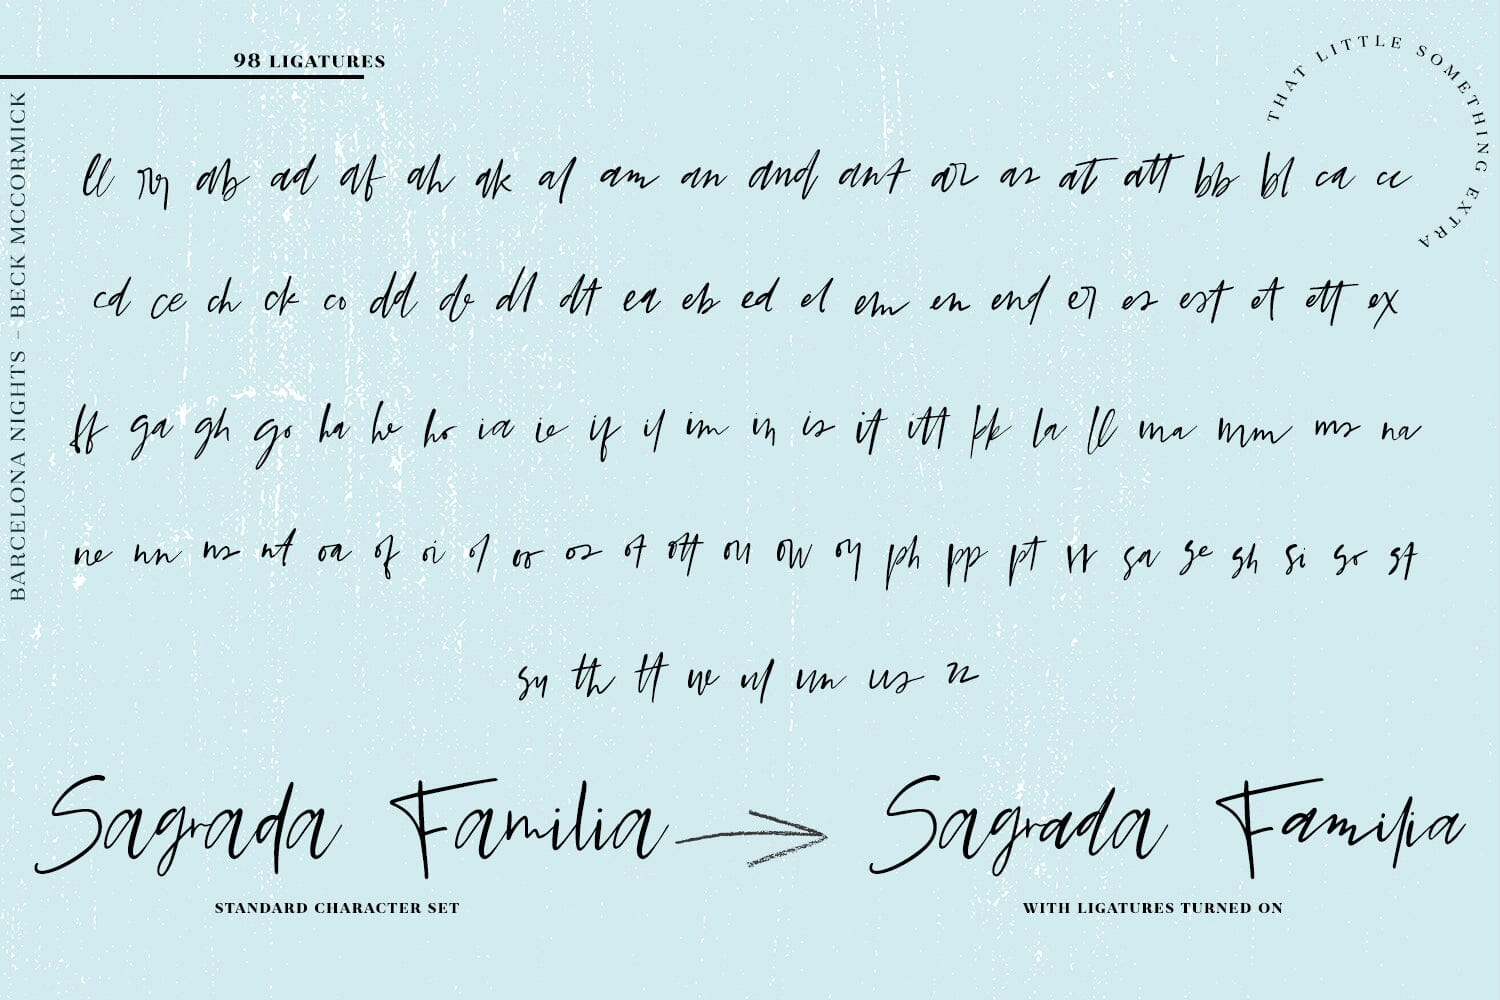 98 LIGATURES
THAT LITTLE SOMETHING EXTRA
BARCELONA NIGHTS - BECK MCCORMICK
ll rg ab ad af ah ak al am an and ant ar as at att bb bl ca cc
cd ce ch ck co dd de dl dt ea eb ed el em en end er es est et ett ex
ff ga gh go ha he ho ia ie if il im in is it itt kk la ll ma mm ms na
ne nn ns nt oa of oi ol or os ot ott ou ow oy ph pp pt rr sa se sh si so st
su th tt ul un us zz
Sagrada Familia Sagrada Familia
STANDARD CHARACTER SET WITH LIGATURES TURNED ON